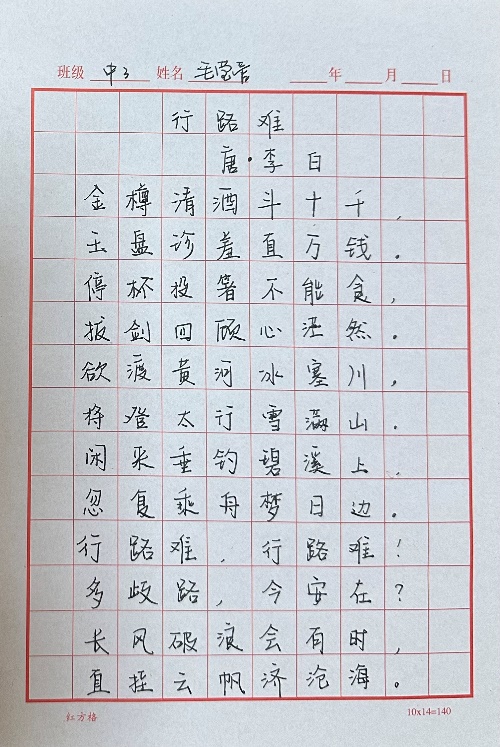 班级 中3 姓名 毛 年 月 日
行路难
唐·李白
金樽清酒斗十千,
玉盘珍羞直万钱。
停杯投箸不能食,
拔剑四顾心茫然。
欲渡黄河冰塞川,
将登太行雪满山。
闲来垂钓碧溪上,
忽复乘舟梦日边。
行路难,行路难!
多歧路,今安在?
长风破浪会有时,
直挂云帆济沧海。
红方格 10x14=140